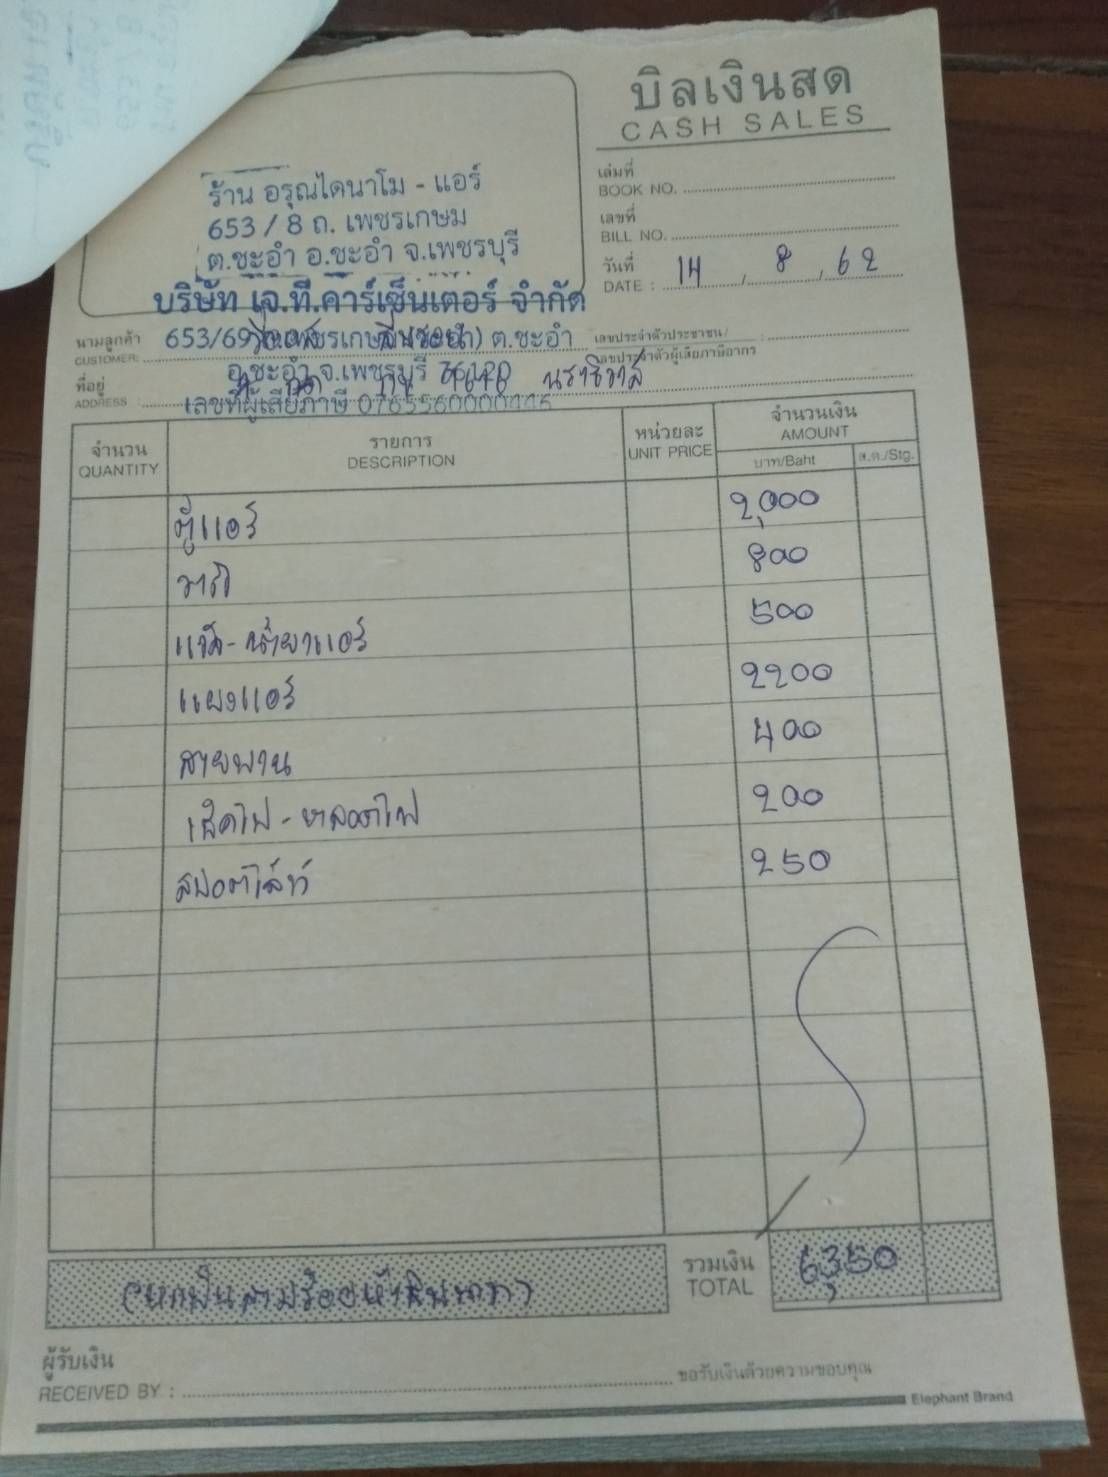 บิลเงินสด
CASH SALES
ร้าน อรุณไดนาโม - แอร์
653 / 8 ถ. เพชรเกษม
ต.ชะอำ อ.ชะอำ จ.เพชรบุรี
เล่มที่
BOOK NO.
เลขที่
BILL NO.
วันที่
DATE : 14 , 8 , 62
บริษัท เจ.ที.คาร์เซ็นเตอร์ จำกัด
นามลูกค้า
CUSTOMER:
653/69 ถ.เพชรเกษม ต.ชะอำ
เลขประจำตัวประชาชน/ :
เลขประจำตัวผู้เสียภาษีอากร
อ.ชะอำ จ.เพชรบุรี 76120
ที่อยู่
ADDRESS :
นราธิวาส
เลขที่ผู้เสียภาษี
จำนวน
QUANTITY
รายการ
DESCRIPTION
หน่วยละ
UNIT PRICE
จำนวนเงิน
AMOUNT
บาท/Baht
ส.ต./Stg.
ตู้แอร์ 2,000
วาล์ว 800
แว๊ค-น้ำยาแอร์ 500
แผงแอร์ 2200
สายพาน 400
เช็คไฟ - หลอดไฟ 200
สปอตไล้ท์ 250
(หกพันสามร้อยห้าสิบบาท)
รวมเงิน
TOTAL
6,350
ผู้รับเงิน
RECEIVED BY :
ขอรับเงินด้วยความขอบคุณ
Elephant Brand